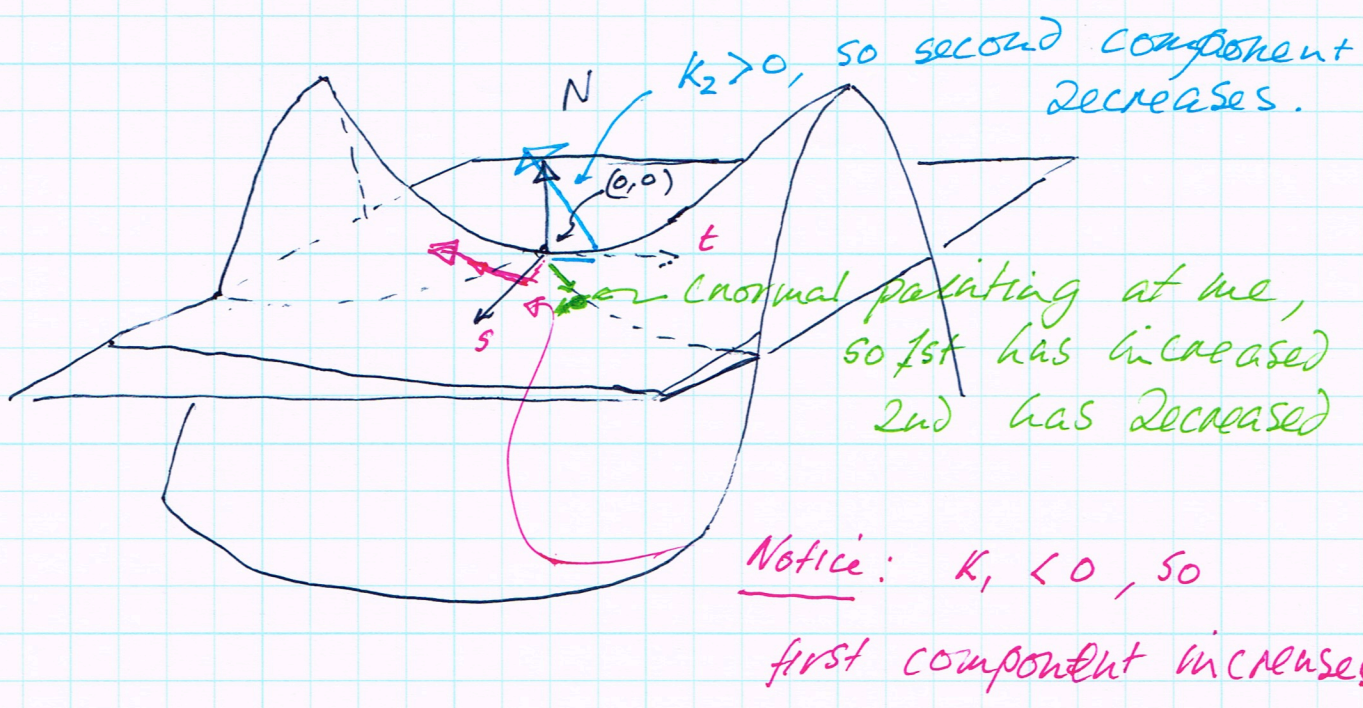 K₂>0, so second component
decreases.
N
(0,0)
t
s
(normal pointing at me,
so 1st has increased
2nd has decreased
Notice: K₁ < 0, so
first component increases